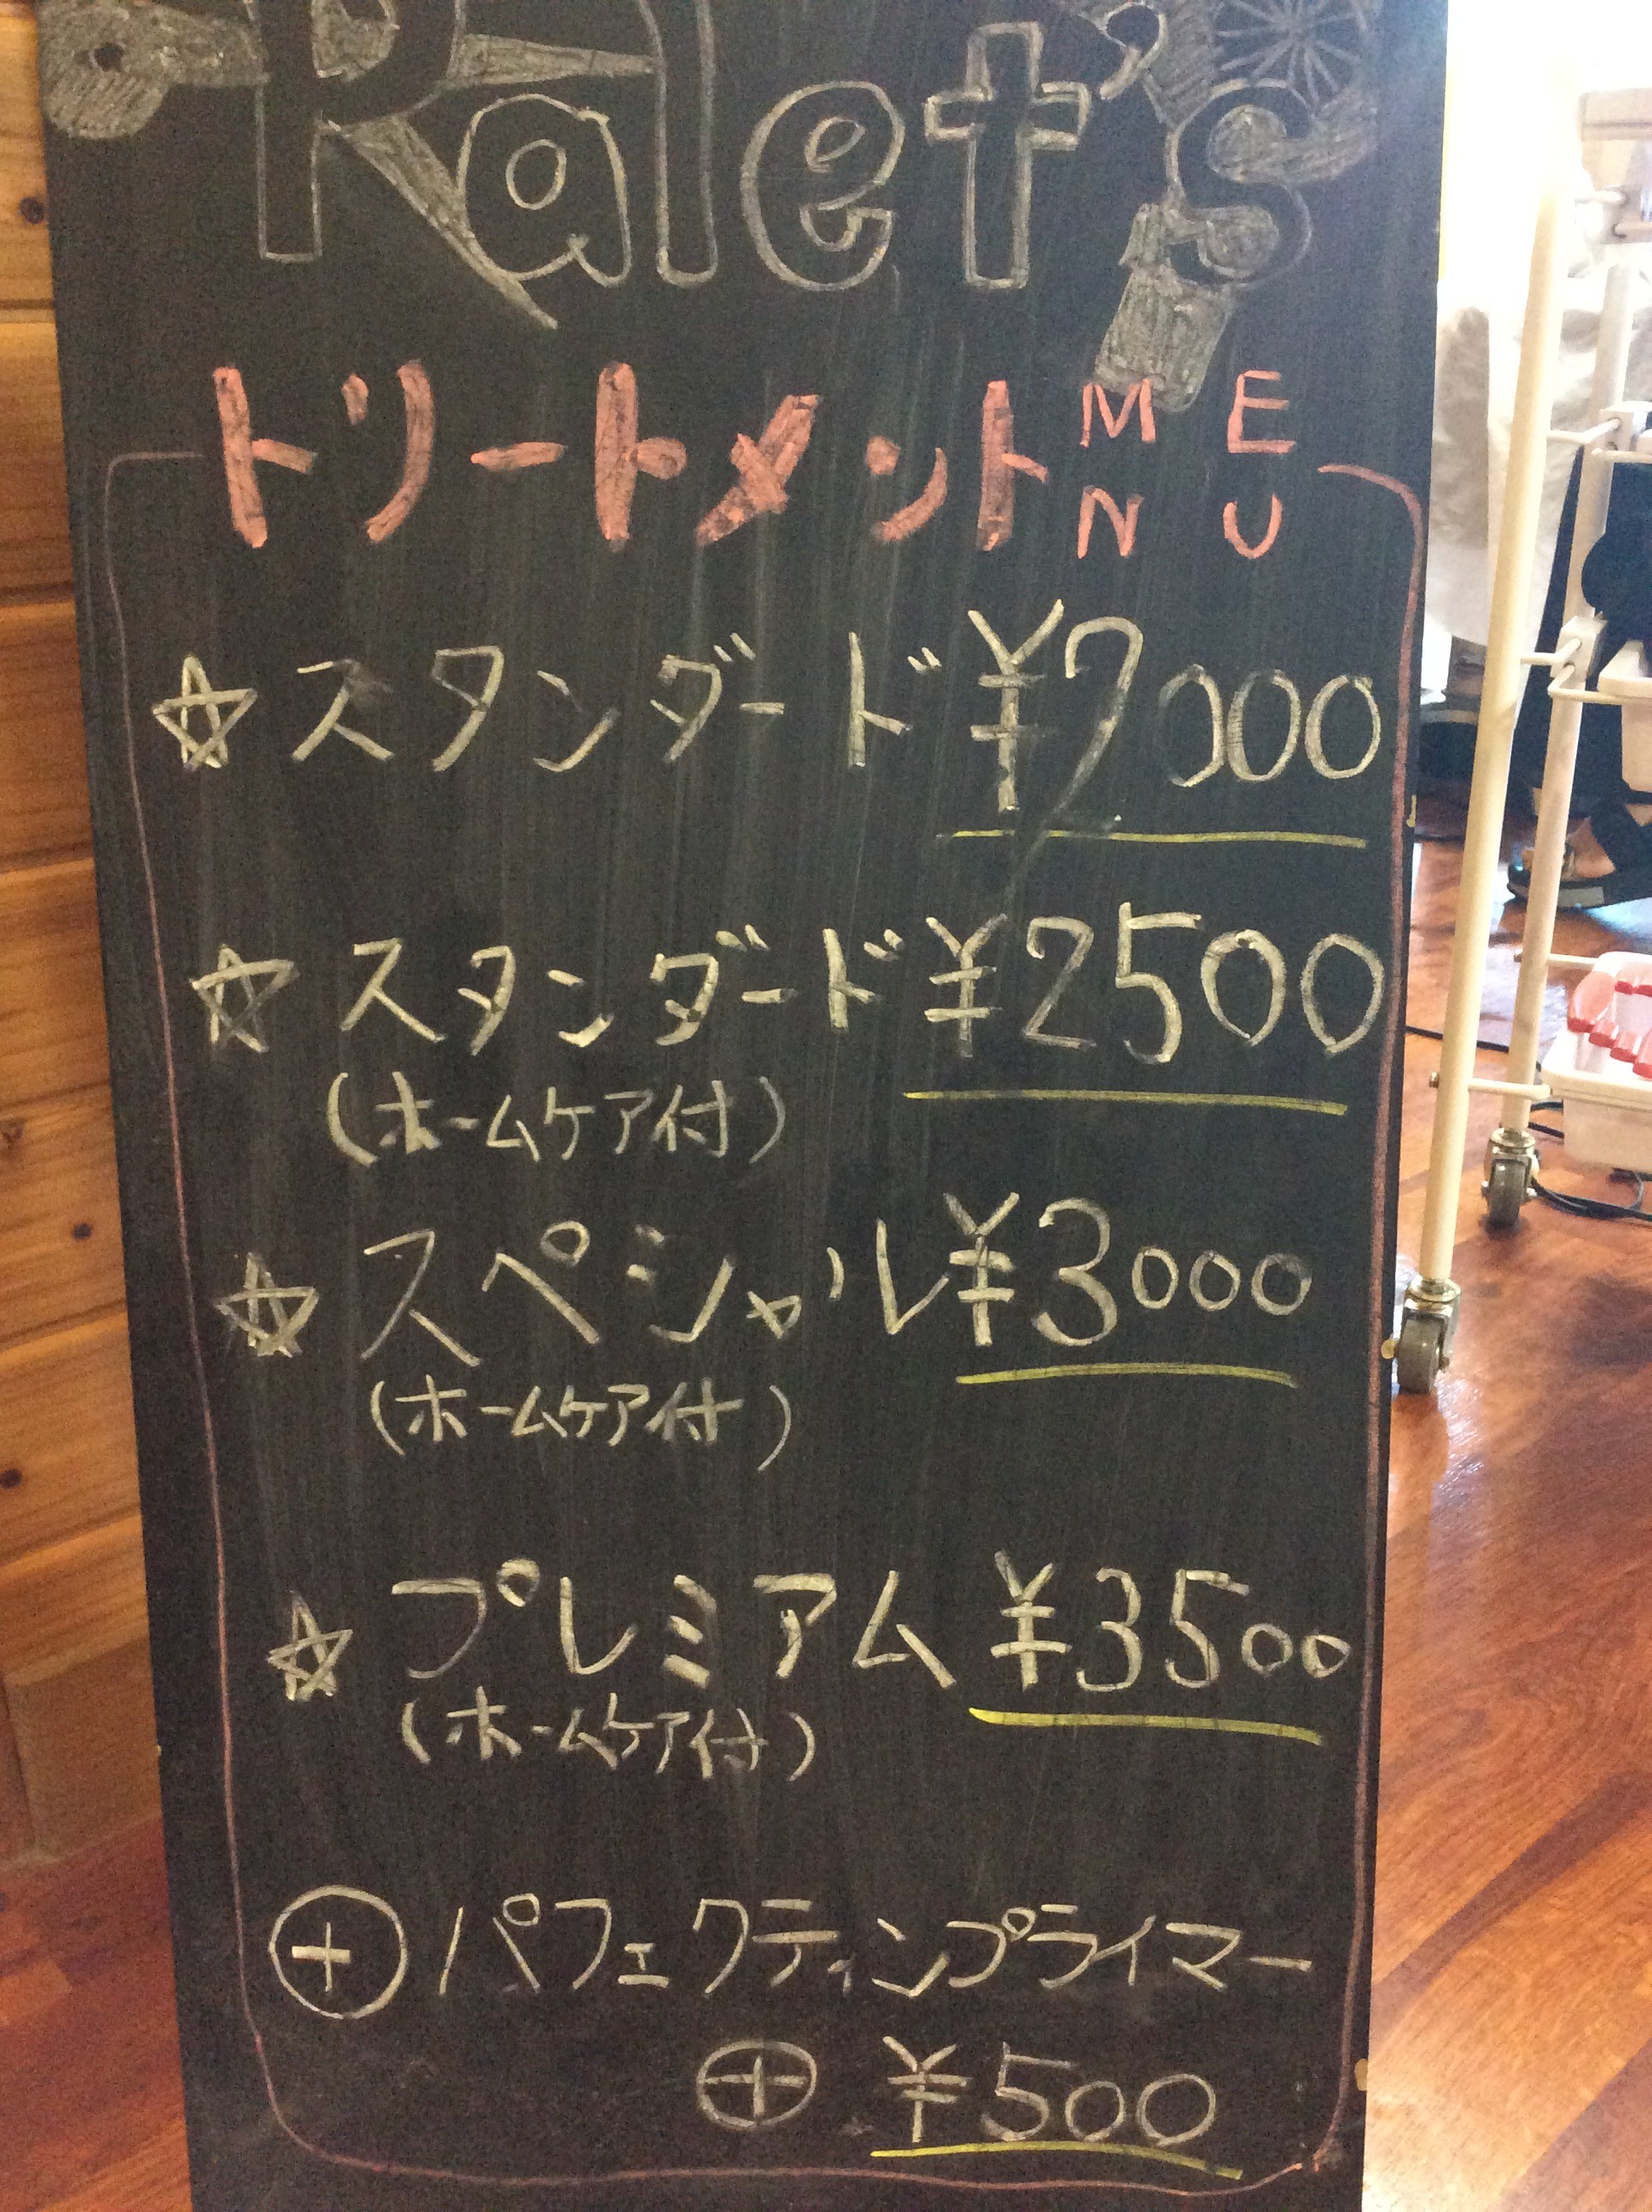 Palet's
トリートメントMENU
☆スタンダード ¥2000
☆スタンダード ¥2500
(ホームケア付)
☆スペシャル ¥3000
(ホームケア付)
☆プレミアム ¥3500
(ホームケア付)
⊕パフェクティンプライマー
⊕ ¥500